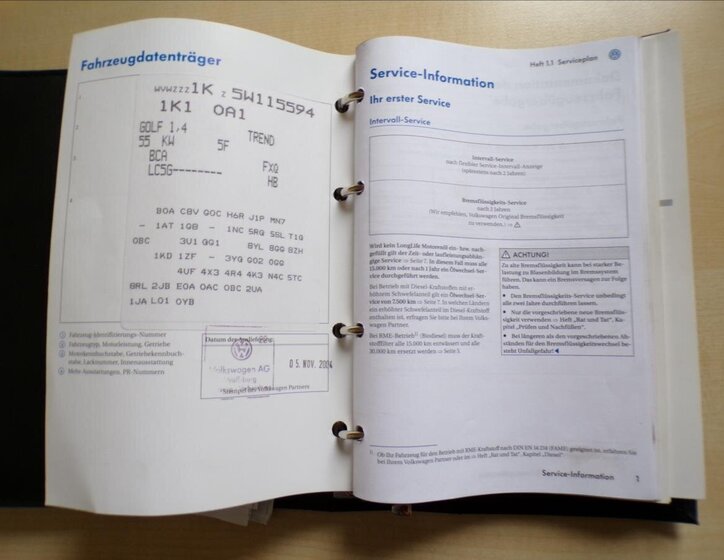 Fahrzeugdatenträger
WVWZZZ1K Z 5W115594
1K1 0A1
GOLF 1,4 TREND
55 KW 5F
BCA FXQ
LC5G-------- HB
B0A C8V G0C H6R J1P MN7
- 1AT 1GB - 1NC 5RQ 5SL T1G
0BC 3U1 QG1 8YL 8GG 8ZH
1KD 1ZF - 3YG 9G2 0GG
4UF 4X3 4R4 4K3 N4C 5TC
8RL 2JB E0A 0AC 0BC 2UA
1JA L01 0YB
1 Fahrzeug-Identifizierungs-Nummer
2 Fahrzeugtyp, Motorleistung, Getriebe
3 Motorkennbuchstabe, Getriebekennbuch-
stabe, Lacknummer, Innenausstattung
4 Mehr Ausstattungen, PR-Nummern
Datum der Auslieferung
05. NOV. 2004
Volkswagen AG
Wolfsburg
Stempel des Volkswagen Partners
Heft 1.1 Serviceplan
Service-Information
Ihr erster Service
Intervall-Service
Intervall-Service
nach flexibler Service-Intervall-Anzeige
(spätestens nach 2 Jahren)
Bremsflüssigkeits-Service
nach 2 Jahren
(Wir empfehlen, Volkswagen Original Bremsflüssigkeit
zu verwenden.) ⇒ ⚠
Wird kein LongLife Motorenöl ein- bzw. nach-
gefüllt gilt der Zeit- oder laufleistungsabhän-
gige Service ⇒ Seite 7. In diesem Fall muss alle
15.000 km oder nach 1 Jahr ein Ölwechsel-Ser-
vice durchgeführt werden.
Bei Betrieb mit Diesel-Kraftstoffen mit er-
höhtem Schwefelanteil gilt ein Ölwechsel-Ser-
vice von 7.500 km ⇒ Seite 7. In welchen Ländern
ein erhöhter Schwefelanteil im Diesel-Kraftstoff
enthalten ist, erfragen Sie bitte bei Ihrem Volks-
wagen Partner.
Bei RME-Betrieb1) (Biodiesel) muss der Kraft-
stofffilter alle 15.000 km entwässert und alle
30.000 km ersetzt werden ⇒ Seite 5.
⚠ ACHTUNG!
Zu alte Bremsflüssigkeit kann bei starker Be-
lastung zu Blasenbildung im Bremssystem
führen. Das kann ein Bremsversagen zur Folge
haben.
• Den Bremsflüssigkeits-Service unbedingt
alle zwei Jahre durchführen lassen.
• Nur die vorgeschriebene neue Bremsflüs-
sigkeit verwenden ⇒ Heft „Rat und Tat“, Ka-
pitel „Prüfen und Nachfüllen“.
• Bei längeren als den vorgeschriebenen Ab-
ständen für den Bremsflüssigkeitswechsel be-
steht Unfallgefahr!
1) Ob Ihr Fahrzeug für den Betrieb mit RME-Kraftstoff nach DIN EN 14 214 (FAME) geeignet ist, erfahren Sie
bei Ihrem Volkswagen Partner oder im ⇒ Heft „Rat und Tat“, Kapitel „Diesel“.
Service-Information 1